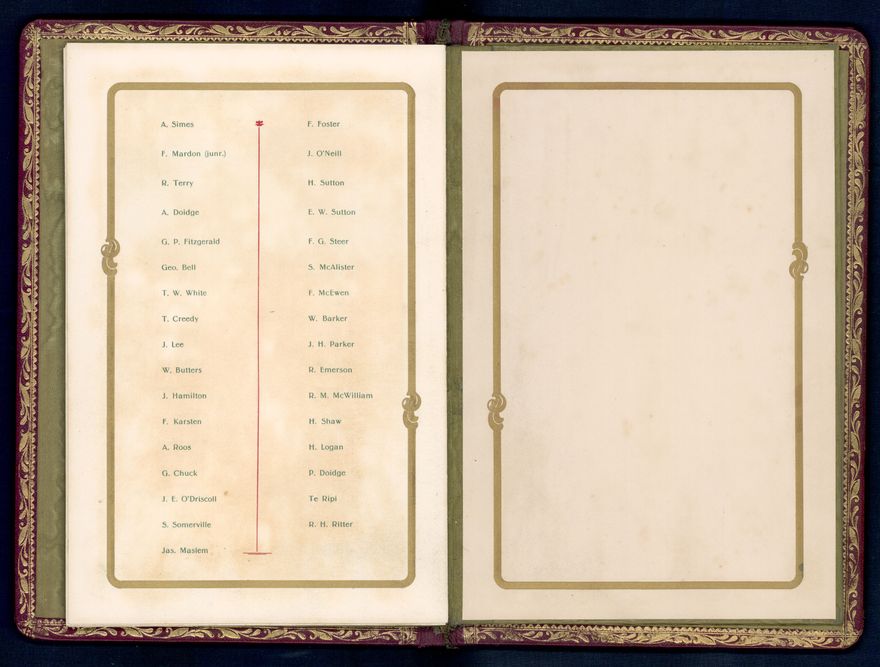 A. Simes
F. Mardon (junr.)
R. Terry
A. Doidge
G. P. Fitzgerald
Geo. Bell
T. W. White
T. Creedy
J. Lee
W. Butters
J. Hamilton
F. Karsten
A. Roos
G. Chuck
J. E. O'Driscoll
S. Somerville
Jas. Maslem
F. Foster
J. O'Neill
H. Sutton
E. W. Sutton
F. G. Steer
S. McAlister
F. McEwen
W. Barker
J. H. Parker
R. Emerson
R. M. McWilliam
H. Shaw
H. Logan
P. Doidge
Te Ripi
R. H. Ritter